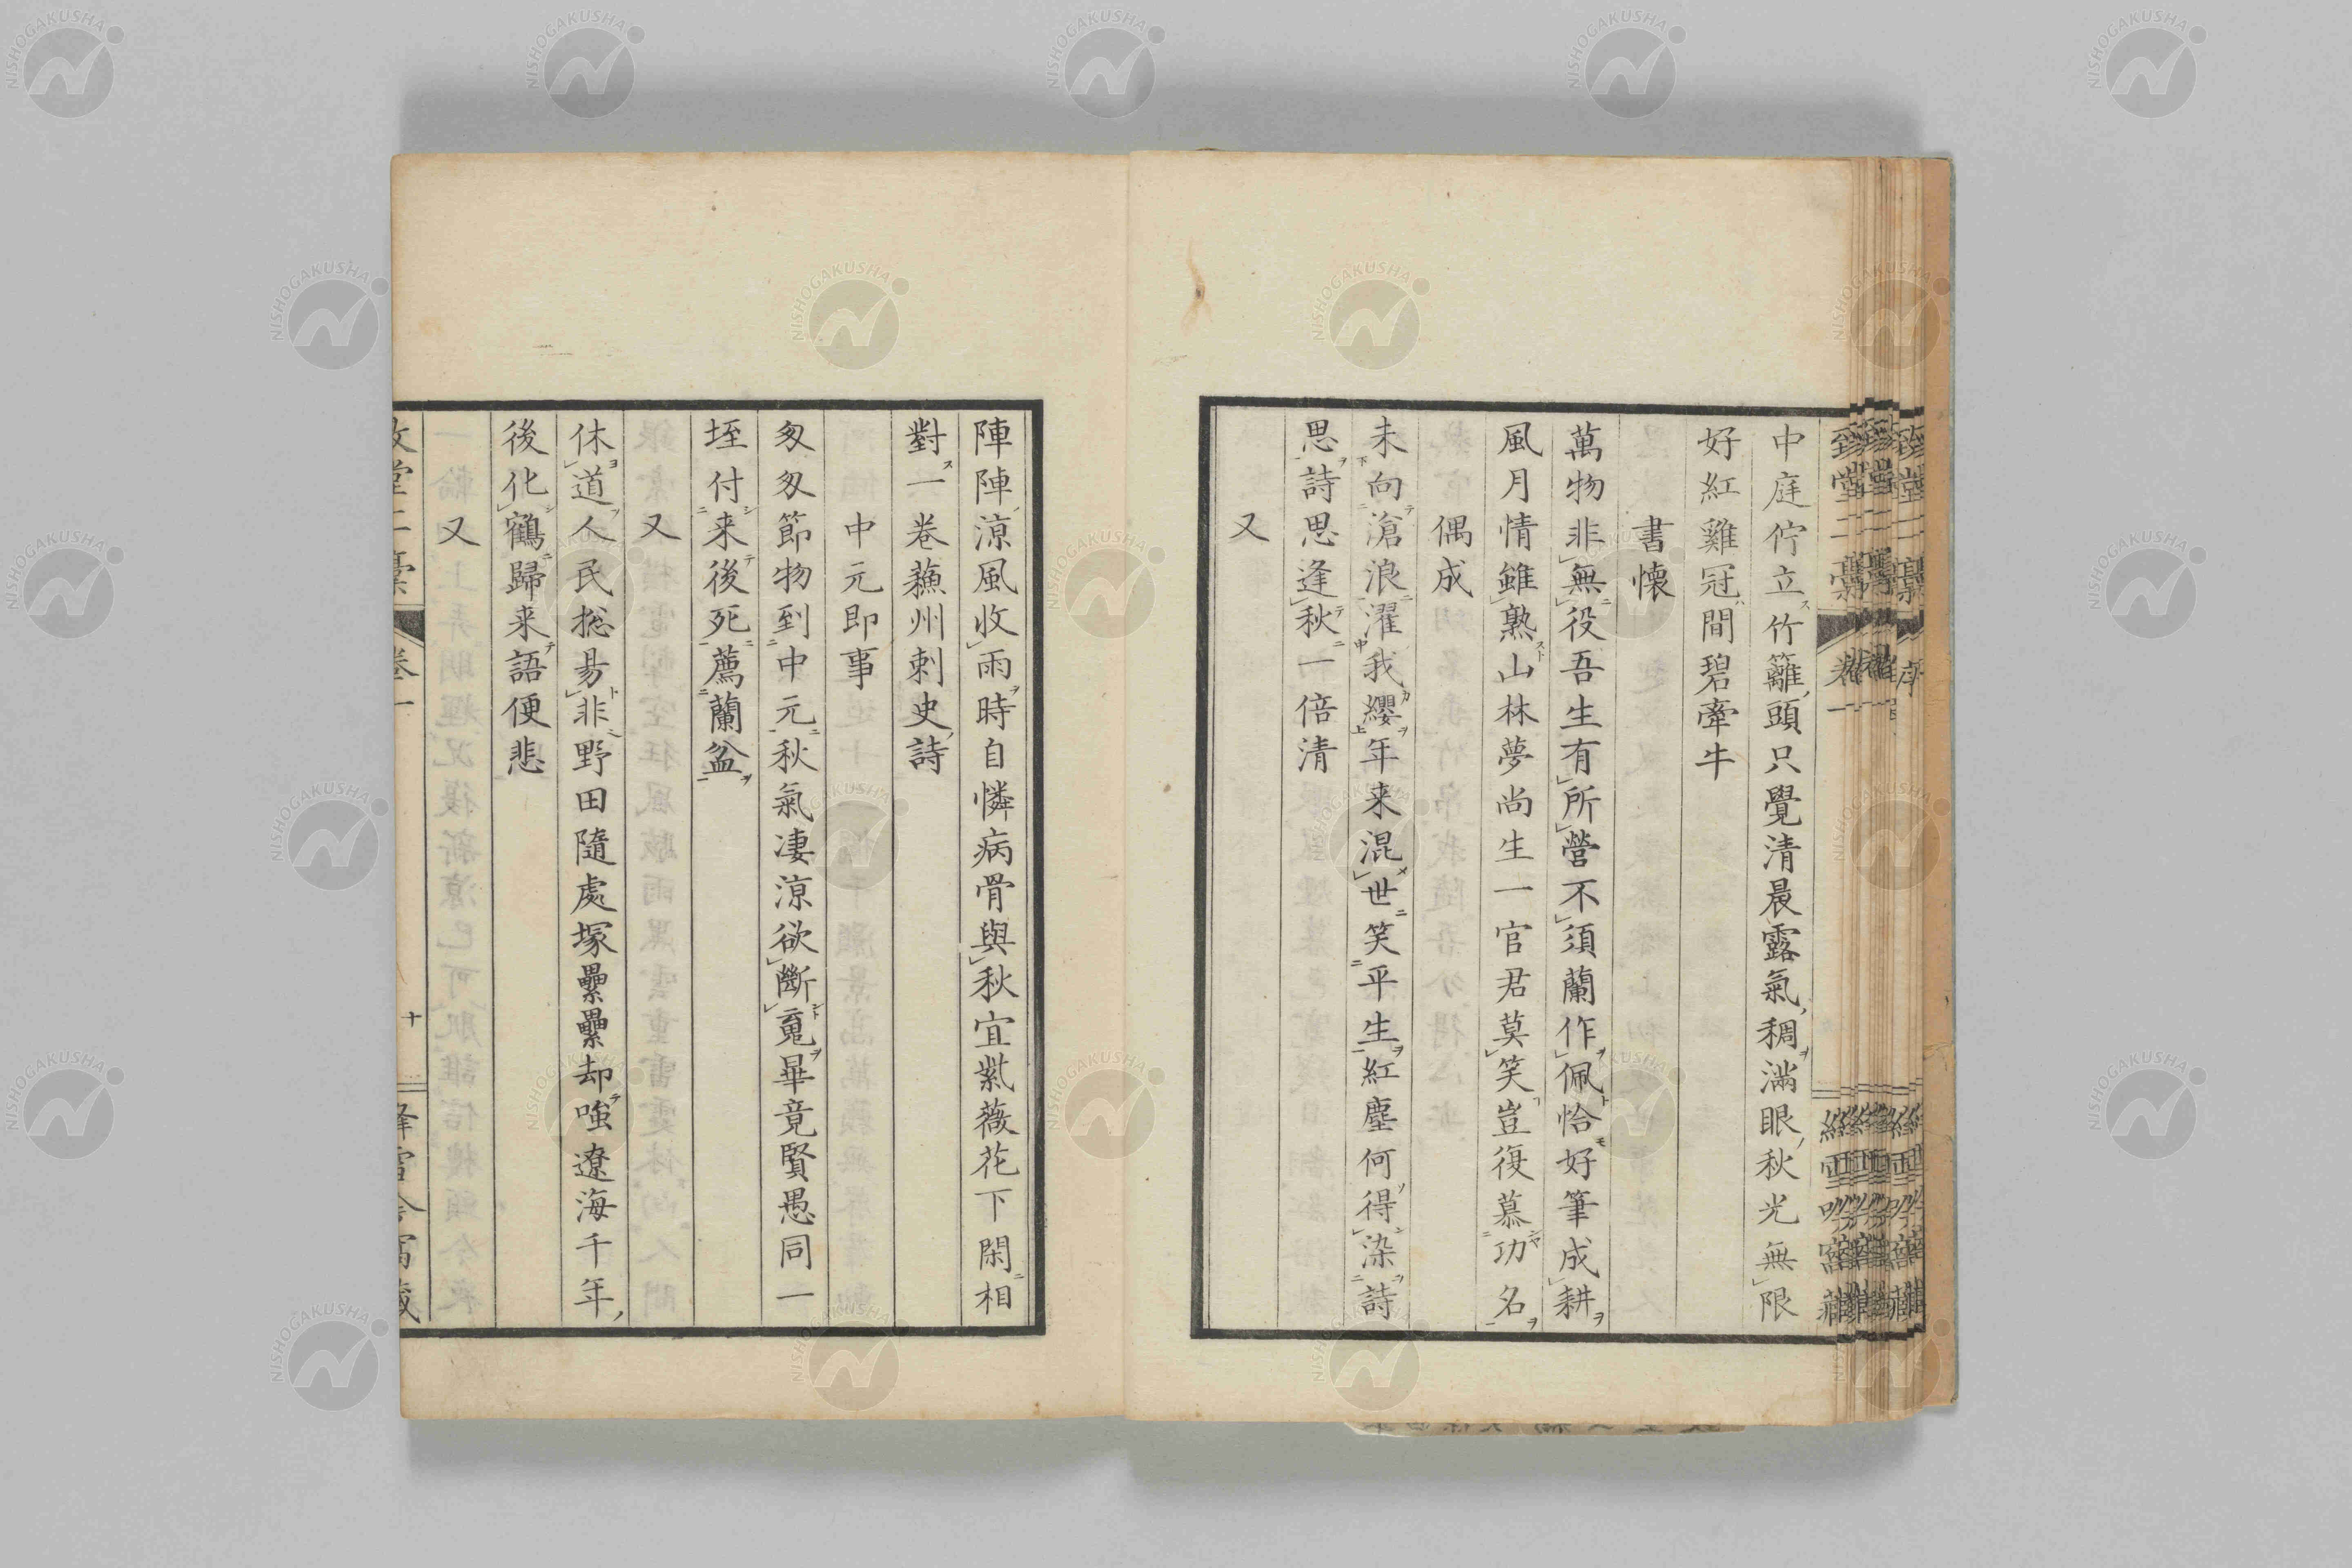 中庭佇立竹籬頭只覺清晨露氣稠滿眼秋光無限
好紅雞冠間碧牽牛
書懐
萬物非無役吾生有所營不須蘭作佩恰好筆成耕
風月情雖熟山林夢尚生一官君莫笑豈復慕功名
偶成
未向滄浪濯我纓年来混世笑平生紅塵何得染詩
思詩思逢秋一倍清
又
陣陣涼風收雨時自憐病骨與秋宜紫薇花下閑相
對一卷蘓州刺史詩
中元即事
匆匆節物到中元秋氣凄涼欲斷䰟畢竟賢愚同一
垤付来後死薦蘭盆
又
休道人民揔易非野田隨處塚纍纍却嗤遼海千年
後化鶴歸来語便悲
又
卷一
十